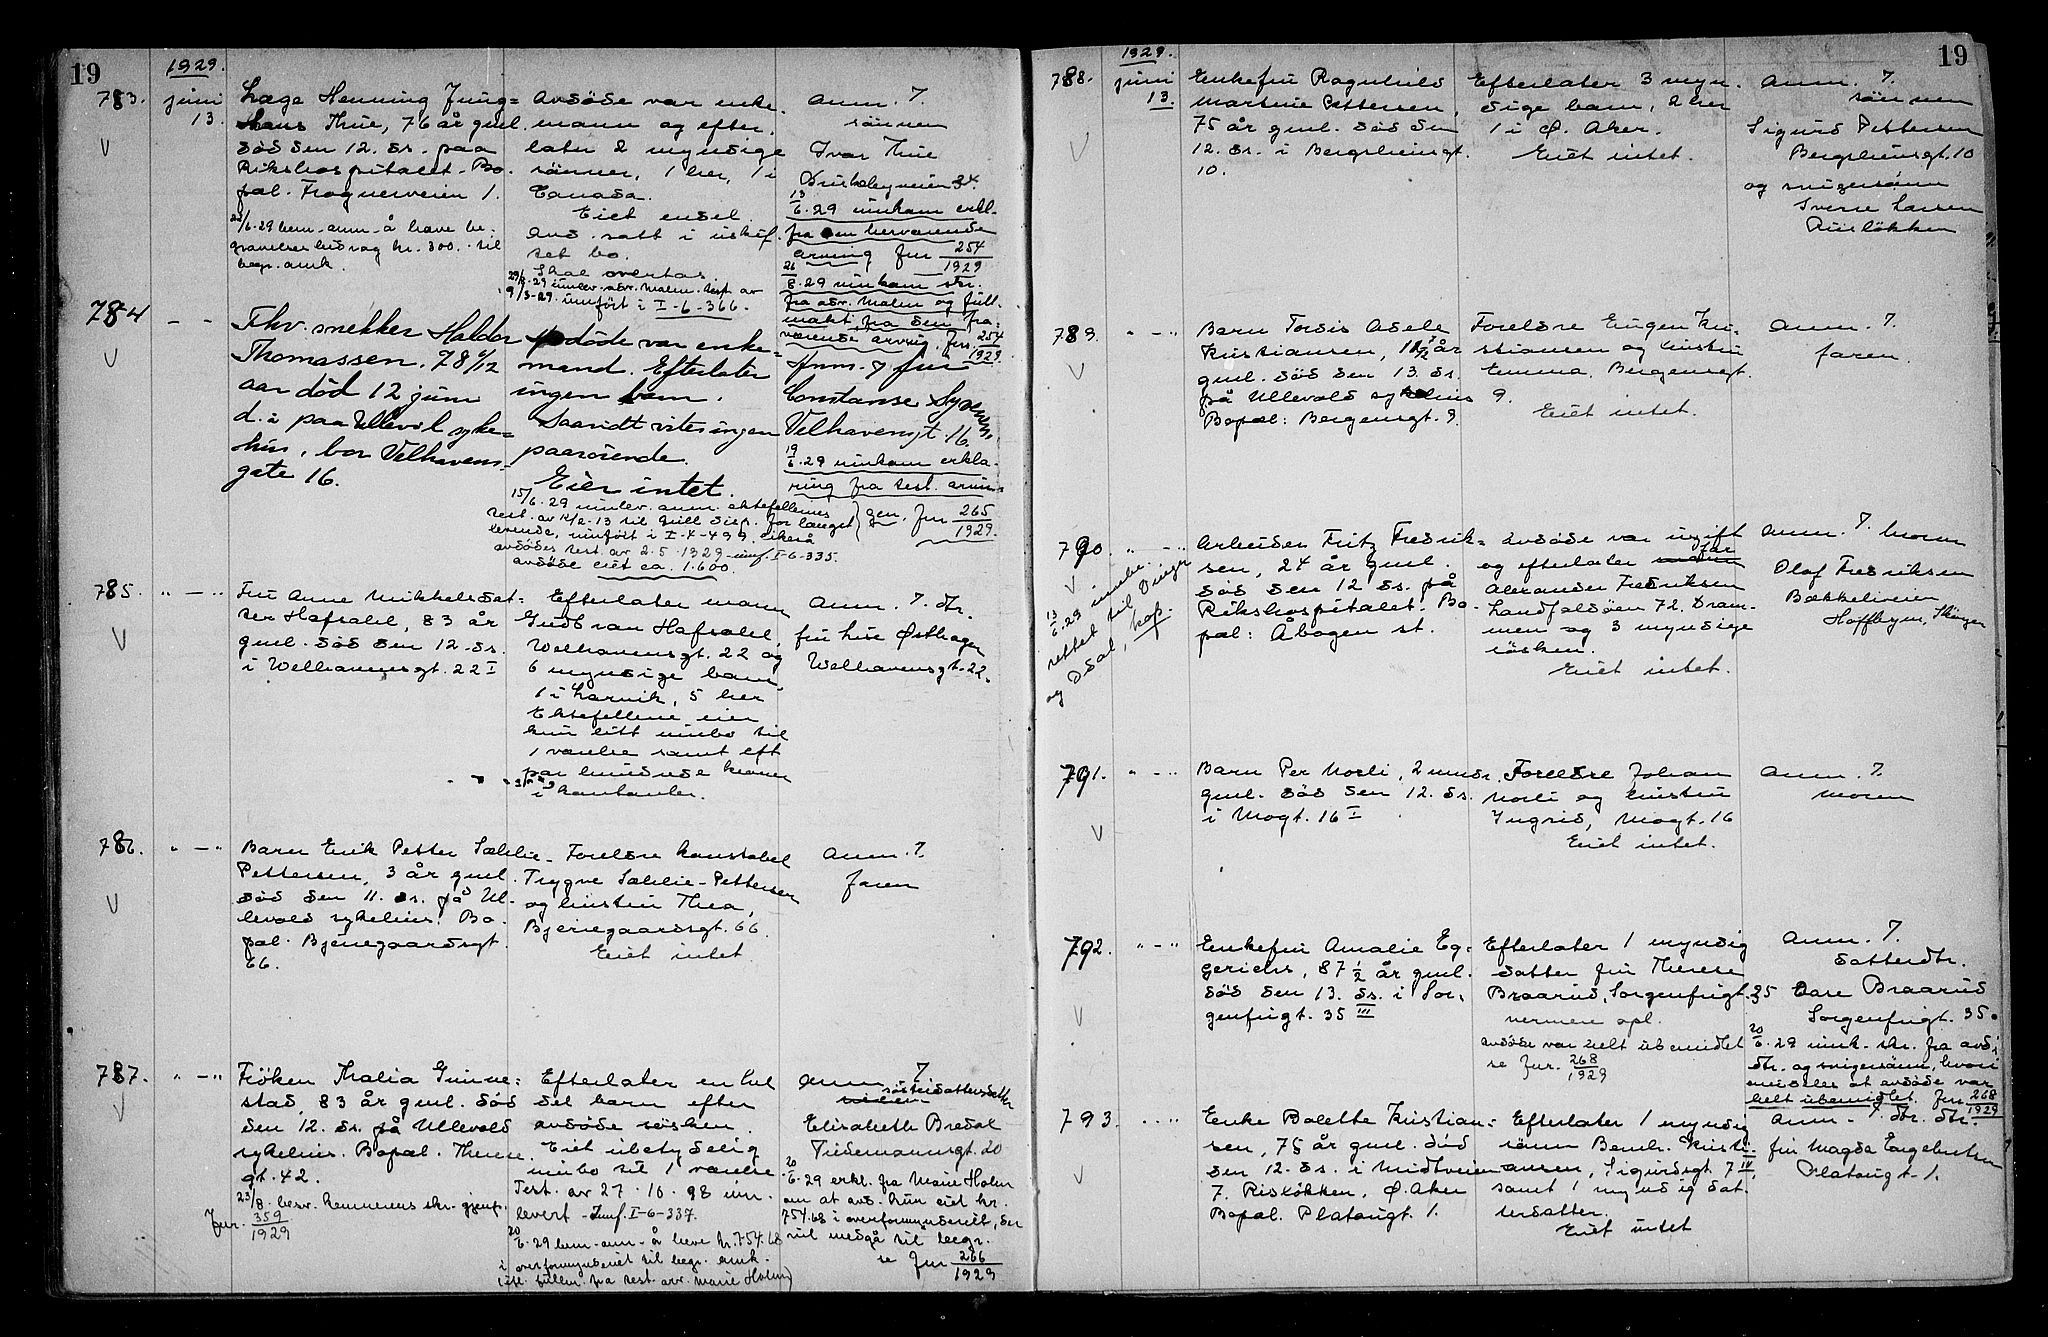 19
1929.
783.
juni
13.
Læge Henning Jung=
hans Thue, 76 år gml.
död den 12. ds. paa
Rikshospitalet. Bo.
pæl. Frognerveien 1.
/6.29 bem. anm. å have be.
gravelsesbidrag kr. 300.- til
begr. omk.
Avdöde var enke.
mann og efter.
later 2 myndige
sönner, 1 her, 1 i
Canada.
Eiet endel.
Avd. satt i uskif.
tet bo.
Skal overtas.
29/6.29 innlev. adv. Malm. test. av
9/3-29. innfört i I-6-366.
anm. 7.
sönnen
Ivar Thue
34.
13/6.29 innkom erkl.
fra den herværende
arving Jnr 254/1929
26/8.29 innkom skr.
fra adv. Malm og full.
makt fra den fra.
værende arving. Jnr. 254/1929
784
- -
Fhv. snekker Haldor
Thomassen. 78 6/12
aar död 12 juni
d. i paa Ullevol syke=
hus, bor Velhavens-
gate 16.
döde var enke=
mand. Efterlater
ingen barn.
Saavidt vites ingen
paarörende.
Eier intet.
15/6.29 innlev. anm. ektefellenes
test. av 12/2-13 til gull disp. for længst
levende, innfört i I-4-499. likeså
avdödes test. av 2.5.1929 - innf. I-6-335.
avdöde eiet ca. 1.600.
Anm. 7 fru
Constanse
Velhavensgt. 16.
19/6.29 innkom erklæ.
ring fra test. arvin.
gen. Jnr 265/1929.
785.
" - "
Fru Anne Mikkelsdat=
ter Hafsahl, 83 år
gml. död den 12. ds.
i Welhavensgt. 22 I
Efterlater mann
Gudbran Hafsahl,
Welhavensgt. 22 og
6 myndige barn,
1 i Larvik, 5 her
Ektefellene eier
kun litt innbo til
1 værelse samt et
par hundrede kroner
i kontanter.
Anm. 7. dtr.
fru Lise Östhagen
Welhavensgt. 22.
786.
" - "
Barn Erik Petter Sæhlie-
Pettersen, 3 år gml.
död den 11. ds. på Ul-
levold sykehus. Bo.
pæl. Bjerregaardsgt.
66.
Foreldre konstabel
Trygve Sæhlie-Pettersen
og hustru Thea,
Bjerregaardsgt. 66.
Eiet intet.
Anm. 7.
faren
787.
" - "
Fröken Thalia Grinne=
stad, 83 år gml. död
den 12. ds. på Ullevold
sykehus. Bopæl. Theres.
gt. 42.
23/8. besv. kemnerens skr. gjenp.
Jnr. 359/1929
Efterlater en hel
del barn efter
avdöde sösken.
Eiet ubetydelig
innbo til 1 værelse
Test. av 27.10.98 inn.
levert - Innf. I-6-337.
20/6.29 bem. anm. å heve kr. 754.68
i overformynderiet til begr. omk.
(efl. fullm. fra test. arv. Marie Holm)
Anm 7.
sösterdattersdatter
Elisabeth Bredal
Tidemannsgt. 20
20/6.29 erkl. fra Marie Holm
om at avd. kun eiet kr.
754.68 i overformynderiet, der
vil medgå til begr.
se Jnr 266/1929
19
1929.
788.
juni
13.
Enkefru Ragnhild
Martine Pettersen,
75 år gml. död den
12. ds. i Bergsliensgt.
10.
Efterlater 3 myn.
dige barn, 2 her
1 i Ö. Aker.
Eiet intet.
Anm. 7.
sönnen
Sigurd Pettersen
Bergsliensgt. 10
og svigersönn
Sverre Larsen
Riislökken
789.
" - "
Barn Tordis Adele
Kristiansen, 1 1/2 år
gml. död den 13. ds.
på Ullevold sykehus
Bopæl: Bergensgt. 9.
Foreldre Eugen Kri-
stiansen og hustru
Emma, Bergensgt.
9.
Eiet intet.
Anm. 7.
faren.
790.
" - "
13/6.29 innbe.
rettet til Vinger
og Odal, kop.
Arbeider Fritz Fredrik=
sen, 24 år gml.
död den 12 ds. på
Rikshospitalet. Bo-
pæl: Åbogen st.
Avdöde var ugift
og efterlater far
Alexander Fredriksen
Landfaldöen 72. Dram-
men og 3 myndige
sösken.
Eiet intet.
Anm. 7. broren
Olaf Fredriksen
Bækkeliveien
Hoffbyen, Sköyen
791.
" - "
Barn Per Norli, 2 mndr.
gml. död den 12. ds.
i Mogt. 16 I
Foreldre Johan
Norli og hustru
Ingrid, Mogt. 16
Eiet intet.
Anm. 7.
moren
792.
" - "
Enkefru Amalie Eg-
gerichs, 87 1/2 år gml.
död den 13. ds. i Sor.
genfrigt. 35 III
Efterlater 1 myndig
datter fru Therese
Braarud, Sorgenfrigt. 35
nermere opl.
avdöde var helt ubemidlet
se Jnr. 268/1929
Anm. 7.
datterdtr.
Braarud
Sorgenfrigt. 35.
20/6.29 innk. skr. fra avd.
dtr. og svigersönn, hvori
meddeles at avdöde var
helt ubemidlet. Jnr 268/1929
793.
" "
Enke Balette Kristian=
sen, 75 år gml. död
den 12. ds. i Midtveien
7. Risløkken, Ö. Aker
Bopæl. Plataugt. 1.
Efterlater 1 myndig
sönn Bernh. Kristi-
ansen, Sigurdsgt. 7 IV,
samt 1 myndig dat.
terdatter.
Eiet intet
Anm. 7 dtr. dtr.
fru Magda Engebretsen
Plataugt. 1.